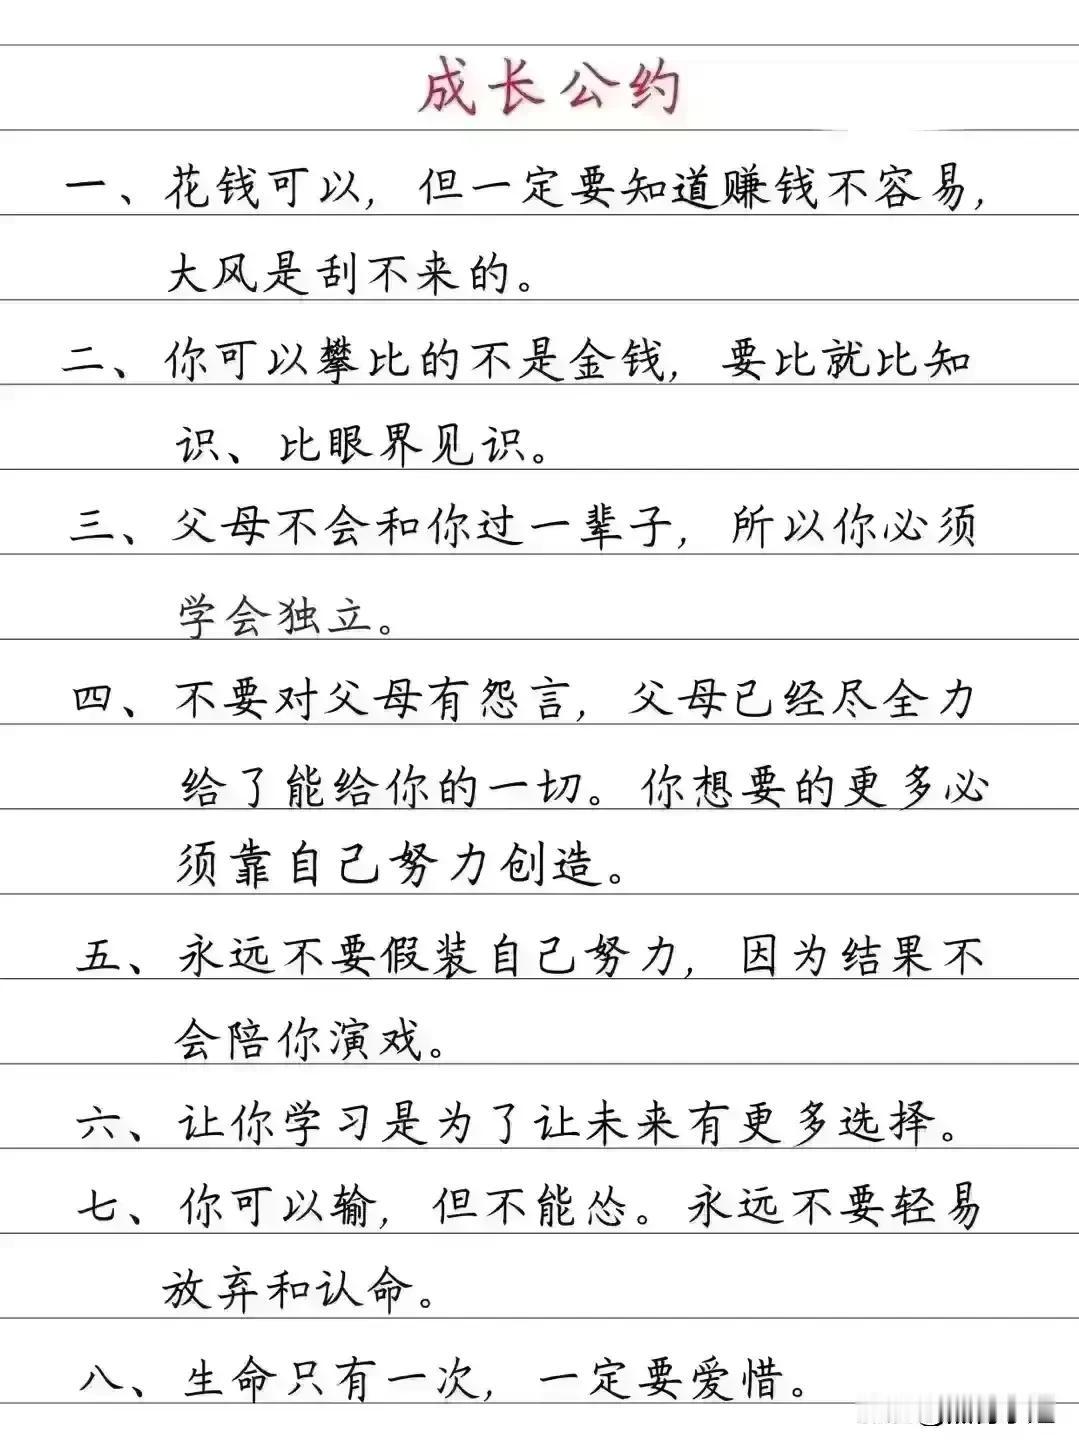 成长公约
一、花钱可以，但一定要知道赚钱不容易，
大风是刮不来的。
二、你可以攀比的不是金钱，要比就比知
识、比眼界见识。
三、父母不会和你过一辈子，所以你必须
学会独立。
四、不要对父母有怨言，父母已经尽全力
给了能给你的一切。你想要的更多必
须靠自己努力创造。
五、永远不要假装自己努力，因为结果不
会陪你演戏。
六、让你学习是为了让未来有更多选择。
七、你可以输，但不能怂。永远不要轻易
放弃和认命。
八、生命只有一次，一定要爱惜。